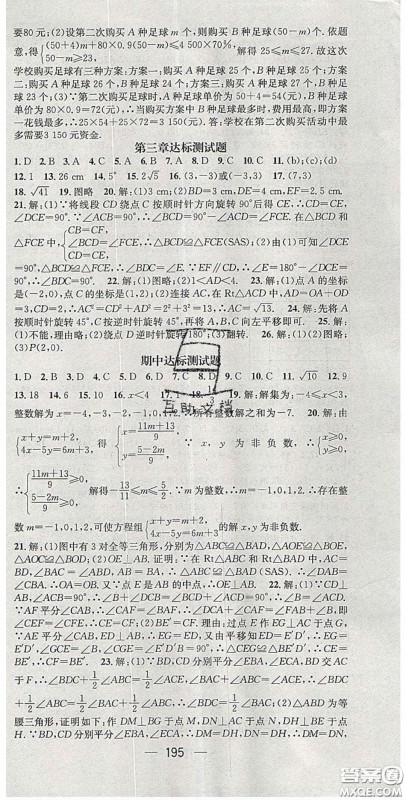 要80元；(2)设第二次购买A种足球m个，则购买B种足球(50－m)个.依题
意，得{(50＋4)m＋80×0.9(50－m)≤4 500×70%, m≥23. 解得25≤m≤27.故这次
学校购买足球有三种方案：方案一：购买A种足球25个，B种足球25个；方案
二：购买A种足球26个，B种足球24个；方案三：购买A种足球27个，B种足
球23个；(3)第二次购买足球时，A种足球单价为50＋4＝54(元)，B种足球单
价为80×0.9＝72(元)，当购买方案中B种足球最多时，费用最高，即方案
一花钱最多.∴25×54＋25×72＝3 150(元).答：学校在第二次购买活动中最
多需要3 150元资金.
第三章达标测试题
1.D 2.B 3.A 4.C 5.A 6.B 7.C 8.D 9.C 10.C 11.(b);(c);(d)
12.1 13.26 cm 14.75° 15.2√5 16.(3,－3)或(－3,3) 17.(7,3)
18.√41 19.图略 20.解：(1)图略；(2)BD＝3 cm，DE＝4 cm，EF＝2.5 cm.
21.解：(1)∵将线段CD绕点C按顺时针方向旋转90°后得CE，∴CD＝CE，
∠DCE＝90°.∵∠ACB＝90°，∴∠BCD＝90°－∠ACD＝∠FCE.在△BCD和
△FCE中{CB＝CF, ∠BCD＝∠FCE, CD＝CE, ∴△BCD≌△FCE(SAS)；(2)由(1)可知∠DCE
＝90°，△BCD≌△FCE，∴∠BDC＝∠E.∵EF∥CD，∴∠E＝180°－∠DCE
＝90°，∴∠BDC＝90°.
(－2,0)，点C的坐标为(1,2)；(2)连接AC，在Rt△ACD中，AD＝OA＋OD
＝3，CD＝2，∴AC²＝CD²＋AD²＝2²＋3²＝13，∴AC＝√13.
按顺时针旋转45°，再将A、B、C向左平移即可.
(1)不能，理由略；(2)绕点D逆时针旋转180°；(3)翻转.
(3)P(2,0).
期中达标测试题
1.D 2.D 3.B 4.C 5.C 6.C 7.D 8.D 11.√10 12.9
13.18 14.6 15.0 16.x＜4 17.1
整数解为－4，－3，－2，－1，0，1，2，3，所有整数解之和为－7. 20.解：由
{x＋y＝m＋2, 4x－5y＝6m＋3, 得{x＝(11m＋13)/9, y＝(5－2m)/9. ∵x，y为非负数，∴
{(11m＋13)/9≥0, (5－2m)/9≥0, 解得－13/11≤m≤5/2.∵m为整数，∴m＝－1,0,1,2.故存在整
数m＝－1,0,1,2，可使方程组{x＋y＝m＋2, 4x－5y＝6m＋3 的解为非负数.
21.解：(1)图中有3对全等三角形，分别为△ABC≌△BAD，△AOE≌△BOE，
△AOC≌△BOD；(2)OE⊥AB.证明：在Rt△ABC和Rt△BAD中，∵AC＝
BD，∠BAC＝∠ABD，AB＝BA，∴△ABC≌△BAD(SAS)，∴∠DAB＝
∠CBA，∴OA＝OB.又∵点E是AB的中点，∴OE⊥AB. 22.解：(1)∵CD⊥
AB，∴∠CAB＋∠ACD＝90°，又∵∠ACB＝90°，∴∠ACD＋∠BCD＝90°.
∵AF平分∠CAB，∴∠CAF＝∠FAB，∴∠CFA＝∠AED＝∠CEF，∴CE
＝CF；(2)BE′＝CF.证明：过点E作EG⊥AC于点G.又∵AF平分∠CAB，
ED⊥AB，∴ED＝EG.由平移的性质可知D′E′＝DE，∴EG＝E′D′.∵∠ACD
＝∠B，∠CGE＝∠BD′E′＝90°，EG＝E′D′，∴△CEG≌△BE′D′，∴CE＝
BE′.∵CE＝CF，∴BE′＝CF. 23.解：(1)∵BD、CD分别平分∠EBA、∠ECA，BD交AC
于F，∴∠BDC＋1/2∠ABC＝1/2∠ACE，∵∠BAC＋∠ABC＝∠ACE，∴∠BDC
＋1/2∠ABC＝1/2∠ABC＋1/2∠BAC，∴∠BDC＝1/2∠BAC；(2)△DMB为等
腰三角形，证明如下：作DM⊥BG于M，DN⊥AC于N，DH⊥BE于H.
∵BD，CD分别平分∠EBA，∠ECA，∴DM＝DH，DN＝DH，∴DM＝DN，
195
互助文档
答案圈
MXQE.COM